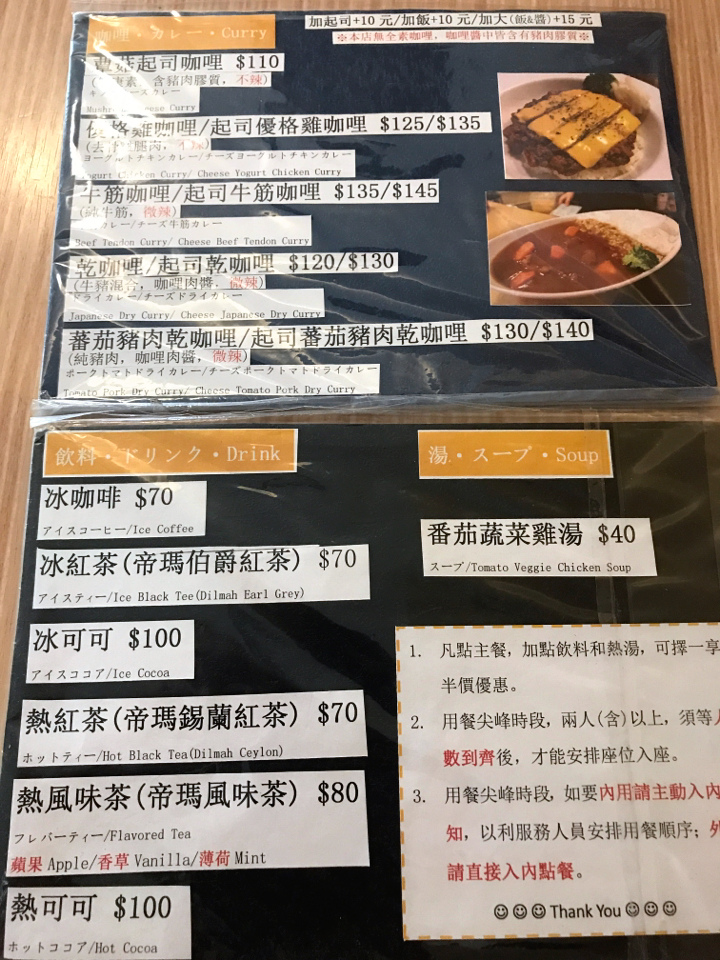 咖哩・カレー・Curry
加起司+10 元/加飯+10 元/加大(飯&醬)+15 元
※本店無全素咖哩，咖哩醬中皆含有豬肉膠質※
蘑菇起司咖哩 $110
素，含豬肉膠質，不辣)
Cheese Curry
優格雞咖哩/起司優格雞咖哩 $125/$135
ヨーグルトチキンカレー/チーズヨーグルトチキンカレー
Yogurt Chicken Curry/ Cheese Yogurt Chicken Curry
牛筋咖哩/起司牛筋咖哩 $135/$145
(純牛筋，微辣)
カレー/チーズ牛筋カレー
Beef Tendon Curry/ Cheese Beef Tendon Curry
乾咖哩/起司乾咖哩 $120/$130
(牛豬混合，咖哩肉醬，微辣)
ドライカレー/チーズドライカレー
Japanese Dry Curry/ Cheese Japanese Dry Curry
蕃茄豬肉乾咖哩/起司蕃茄豬肉乾咖哩 $130/$140
(純豬肉，咖哩肉醬，微辣)
ポークトマトドライカレー/チーズポークトマトドライカレー
Tomato Pork Dry Curry/ Cheese Tomato Pork Dry Curry
飲料・ドリンク・Drink
冰咖啡 $70
アイスコーヒー/Ice Coffee
冰紅茶(帝瑪伯爵紅茶) $70
アイスティー/Ice Black Tee(Dilmah Earl Grey)
冰可可 $100
アイスココア/Ice Cocoa
熱紅茶(帝瑪錫蘭紅茶) $70
ホットティー/Hot Black Tea(Dilmah Ceylon)
熱風味茶(帝瑪風味茶) $80
フレバーティー/Flavored Tea
蘋果 Apple/香草 Vanilla/薄荷 Mint
熱可可 $100
ホットココア/Hot Cocoa
湯・スープ・Soup
番茄蔬菜雞湯 $40
スープ/Tomato Veggie Chicken Soup
1. 凡點主餐，加點飲料和熱湯，可擇一享
半價優惠。
2. 用餐尖峰時段，兩人(含)以上，須等人
數到齊後，才能安排座位入座。
3. 用餐尖峰時段，如要內用請主動入內
知，以利服務人員安排用餐順序；外
請直接入內點餐。
☺☺☺ Thank You ☺☺☺